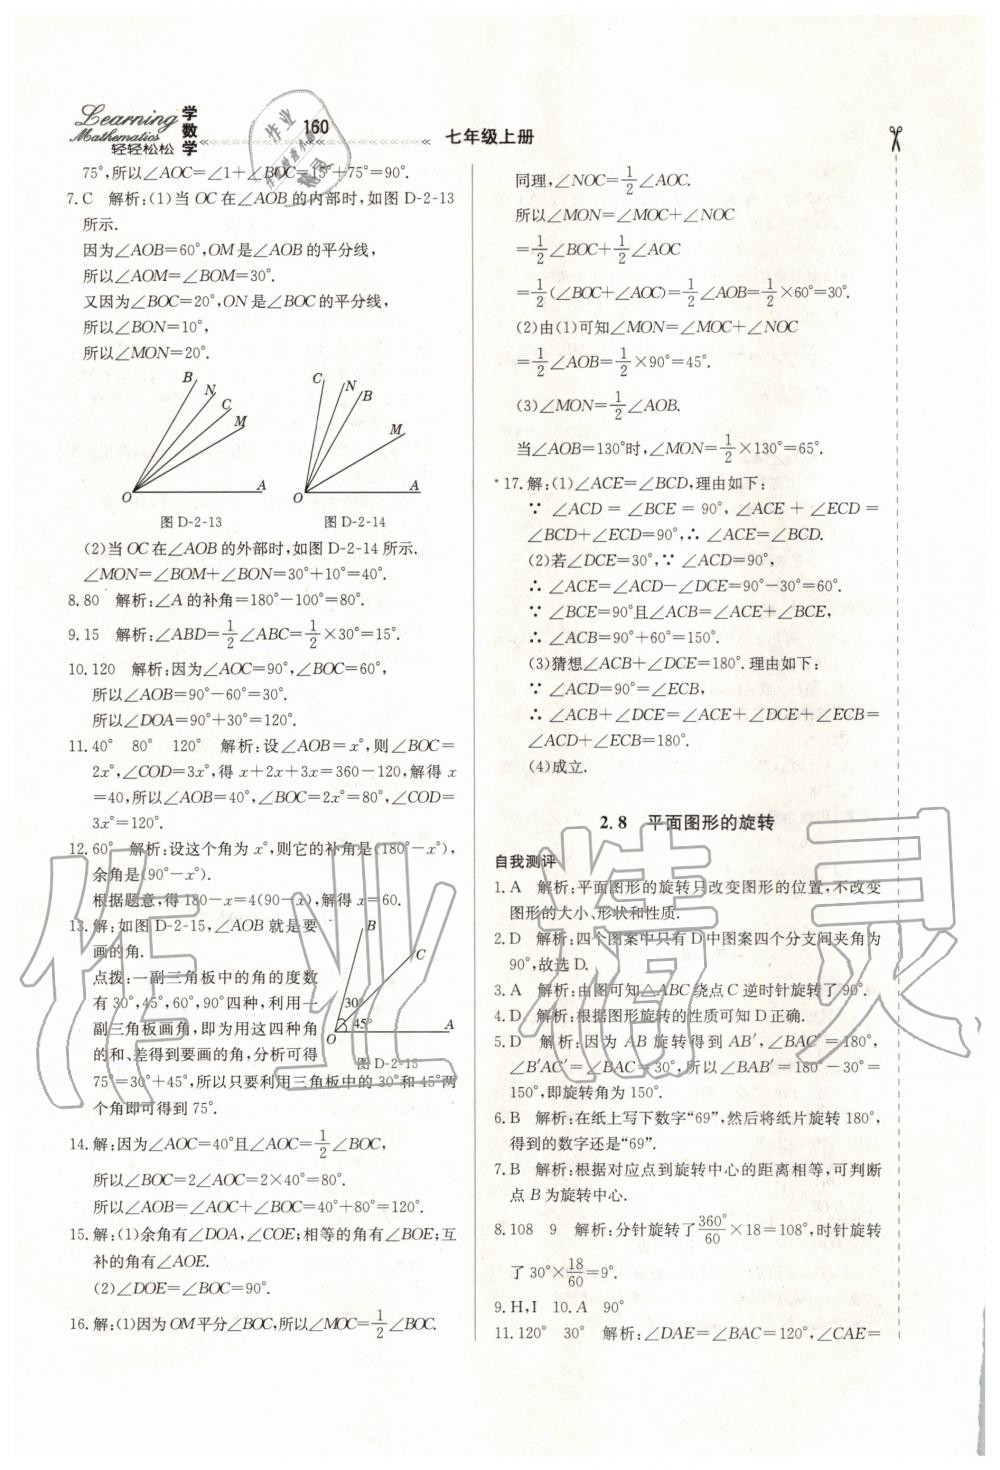 Learning
Mathematics
学数学
轻轻松松
160
七年级上册
75°,所以∠AOC=∠1+∠BOC=15°+75°=90°.
7.C 解析:(1)当OC在∠AOB的内部时,如图D-2-13
所示.
因为∠AOB=60°,OM是∠AOB的平分线,
所以∠AOM=∠BOM=30°.
又因为∠BOC=20°,ON是∠BOC的平分线,
所以∠BON=10°,
所以∠MON=20°.
B
N
C
M
O
A
C
N
B
M
O
A
图D-2-13
图D-2-14
(2)当OC在∠AOB的外部时,如图D-2-14所示.
∠MON=∠BOM+∠BON=30°+10°=40°.
8.80 解析:∠A的补角=180°-100°=80°.
9.15 解析:∠ABD=1/2∠ABC=1/2×30°=15°.
10.120 解析:因为∠AOC=90°,∠BOC=60°,
所以∠AOB=90°-60°=30°.
所以∠DOA=90°+30°=120°.
11.40° 80° 120° 解析:设∠AOB=x°,则∠BOC=
2x°,∠COD=3x°,得x+2x+3x=360-120,解得x
=40,所以∠AOB=40°,∠BOC=2x°=80°,∠COD=
3x°=120°.
12.60° 解析:设这个角为x°,则它的补角是(180°-x°),
余角是(90°-x°).
根据题意,得180-x=4(90-x),解得x=60.
13.解:如图D-2-15,∠AOB就是要
画的角.
点拨:一副三角板中的角的度数
有30°,45°,60°,90°四种,利用一
副三角板画角,即为用这四种角
的和、差得到要画的角,分析可得
75°=30°+45°,所以只要利用三角板中的30°和45°两
个角即可得到75°.
B
C
30°
45°
O
A
图D-2-15
14.解:因为∠AOC=40°且∠AOC=1/2∠BOC,
所以∠BOC=2∠AOC=2×40°=80°.
所以∠AOB=∠AOC+∠BOC=40°+80°=120°.
15.解:(1)余角有∠DOA,∠COE;相等的角有∠BOE;互
补的角有∠AOE.
(2)∠DOE=∠BOC=90°.
16.解:(1)因为OM平分∠BOC,所以∠MOC=1/2∠BOC.
同理,∠NOC=1/2∠AOC.
所以∠MON=∠MOC+∠NOC
=1/2∠BOC+1/2∠AOC
=1/2(∠BOC+∠AOC)=1/2∠AOB=1/2×60°=30°.
(2)由(1)可知∠MON=∠MOC+∠NOC
=1/2∠AOB=1/2×90°=45°.
(3)∠MON=1/2∠AOB.
当∠AOB=130°时,∠MON=1/2×130°=65°.
*17.解:(1)∠ACE=∠BCD,理由如下:
∵∠ACD=∠BCE=90°,∠ACE+∠ECD=
∠BCD+∠ECD=90°,∴∠ACE=∠BCD.
(2)若∠DCE=30°,∵∠ACD=90°,
∴∠ACE=∠ACD-∠DCE=90°-30°=60°.
∵∠BCE=90°且∠ACB=∠ACE+∠BCE,
∴∠ACB=90°+60°=150°.
(3)猜想∠ACB+∠DCE=180°.理由如下:
∵∠ACD=90°=∠ECB,
∴∠ACB+∠DCE=∠ACE+∠DCE+∠ECB=
∠ACD+∠ECB=180°.
(4)成立.
2.8 平面图形的旋转
自我测评
1.A 解析:平面图形的旋转只改变图形的位置,不改变
图形的大小、形状和性质.
2.D 解析:四个图案中只有D中图案四个分支间夹角为
90°,故选D.
3.A 解析:由图可知△ABC绕点C逆时针旋转了90°.
4.D 解析:根据图形旋转的性质可知D正确.
5.D 解析:因为AB旋转得到AB′,∠BAC′=180°,
∠B′AC′=∠BAC=30°,所以∠BAB′=180°-30°=
150°,即旋转角为150°.
6.B 解析:在纸上写下数字“69”,然后将纸片旋转180°,
得到的数字还是“69”.
7.B 解析:根据对应点到旋转中心的距离相等,可判断
点B为旋转中心.
8.108 9 解析:分针旋转了360°/60×18=108°,时针旋转
了30°×18/60=9°.
9.H,I 10.A 90°
11.120° 30° 解析:∠DAE=∠BAC=120°,∠CAE=
作业精灵